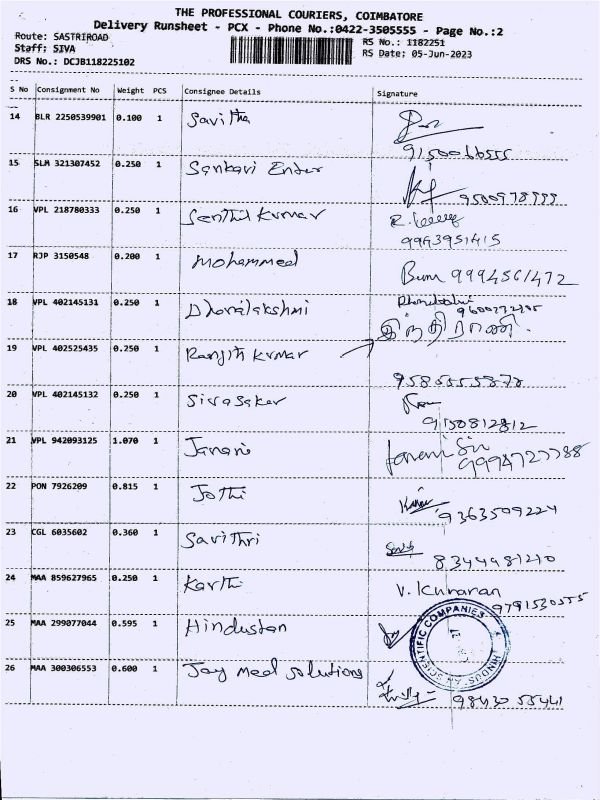 THE PROFESSIONAL COURIERS, COIMBATORE
Delivery Runsheet - PCX - Phone No.:0422-3505555 - Page No.:2
Route: SASTRIROAD RS No.: 1182251
Staff: SIVA RS Date: 05-Jun-2023
DRS No.: DCJB118225102
S No Consignment No Weight PCS Consignee Details Signature
14 BLR 2250539901 0.100 1 Savitha
9150066555
15 SLM 321307452 0.250 1 Sankavi Enter
9500978999
16 VPL 218780333 0.250 1 Senthil Kumar
9943951415
17 RJP 3150548 0.200 1 Mohammed
9994561472
18 VPL 402145131 0.250 1 Dhanalakshmi
இந்திராணி.
19 VPL 402525435 0.250 1 Ranjith Kumar
20 VPL 402145132 0.250 1 Sivasakar
9150812812
21 VPL 942093125 1.070 1 Janani
9994727788
22 PON 7926209 0.815 1 Jothi
9363509224
23 CGL 6035602 0.360 1 Savithri
8344981210
24 MAA 859627965 0.250 1 Karthi V. Kumaran
9791530555
25 MAA 299077044 0.595 1 Hindustan
SCIENTIFIC COMPANIES
26 MAA 300306553 0.600 1 Jay Med Solutions
98430 55441